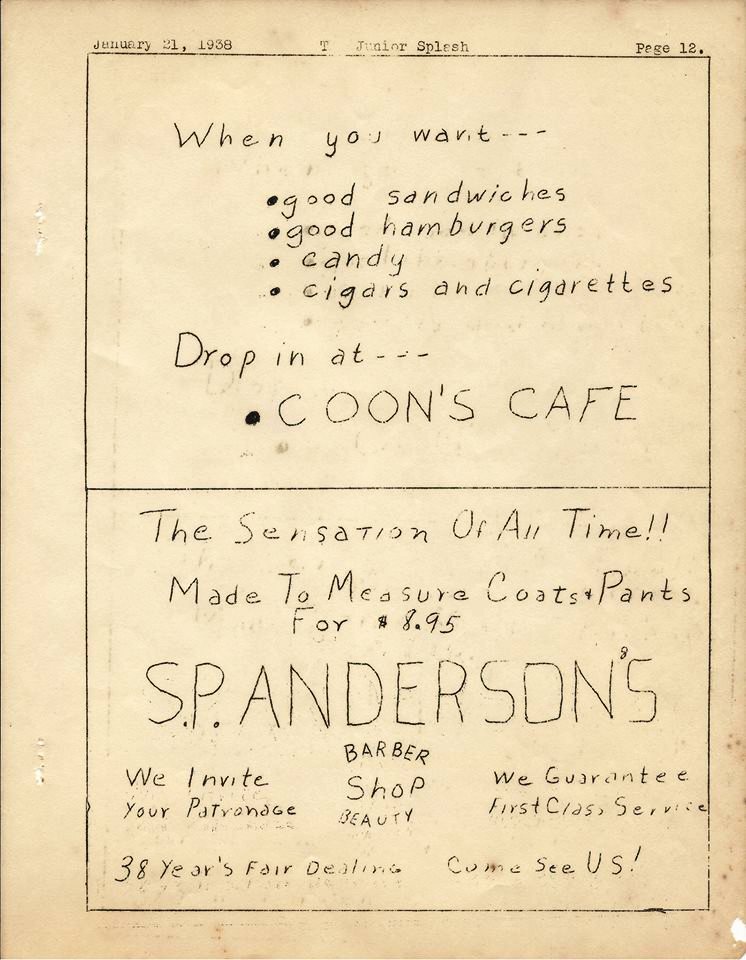 January 21, 1938 T Junior Splash Page 12.
When you want---
•good sandwiches
•good hamburgers
• candy
• cigars and cigarettes
Drop in at---
•COON'S CAFE
The Sensation Of All Time!!
Made To Measure Coats & Pants
For $8.95
S.P. ANDERSON'S
BARBER
We Invite ShoP We Guarantee
Your Patronage BEAUTY First Class Service
38 Year's Fair Dealing Come See US!